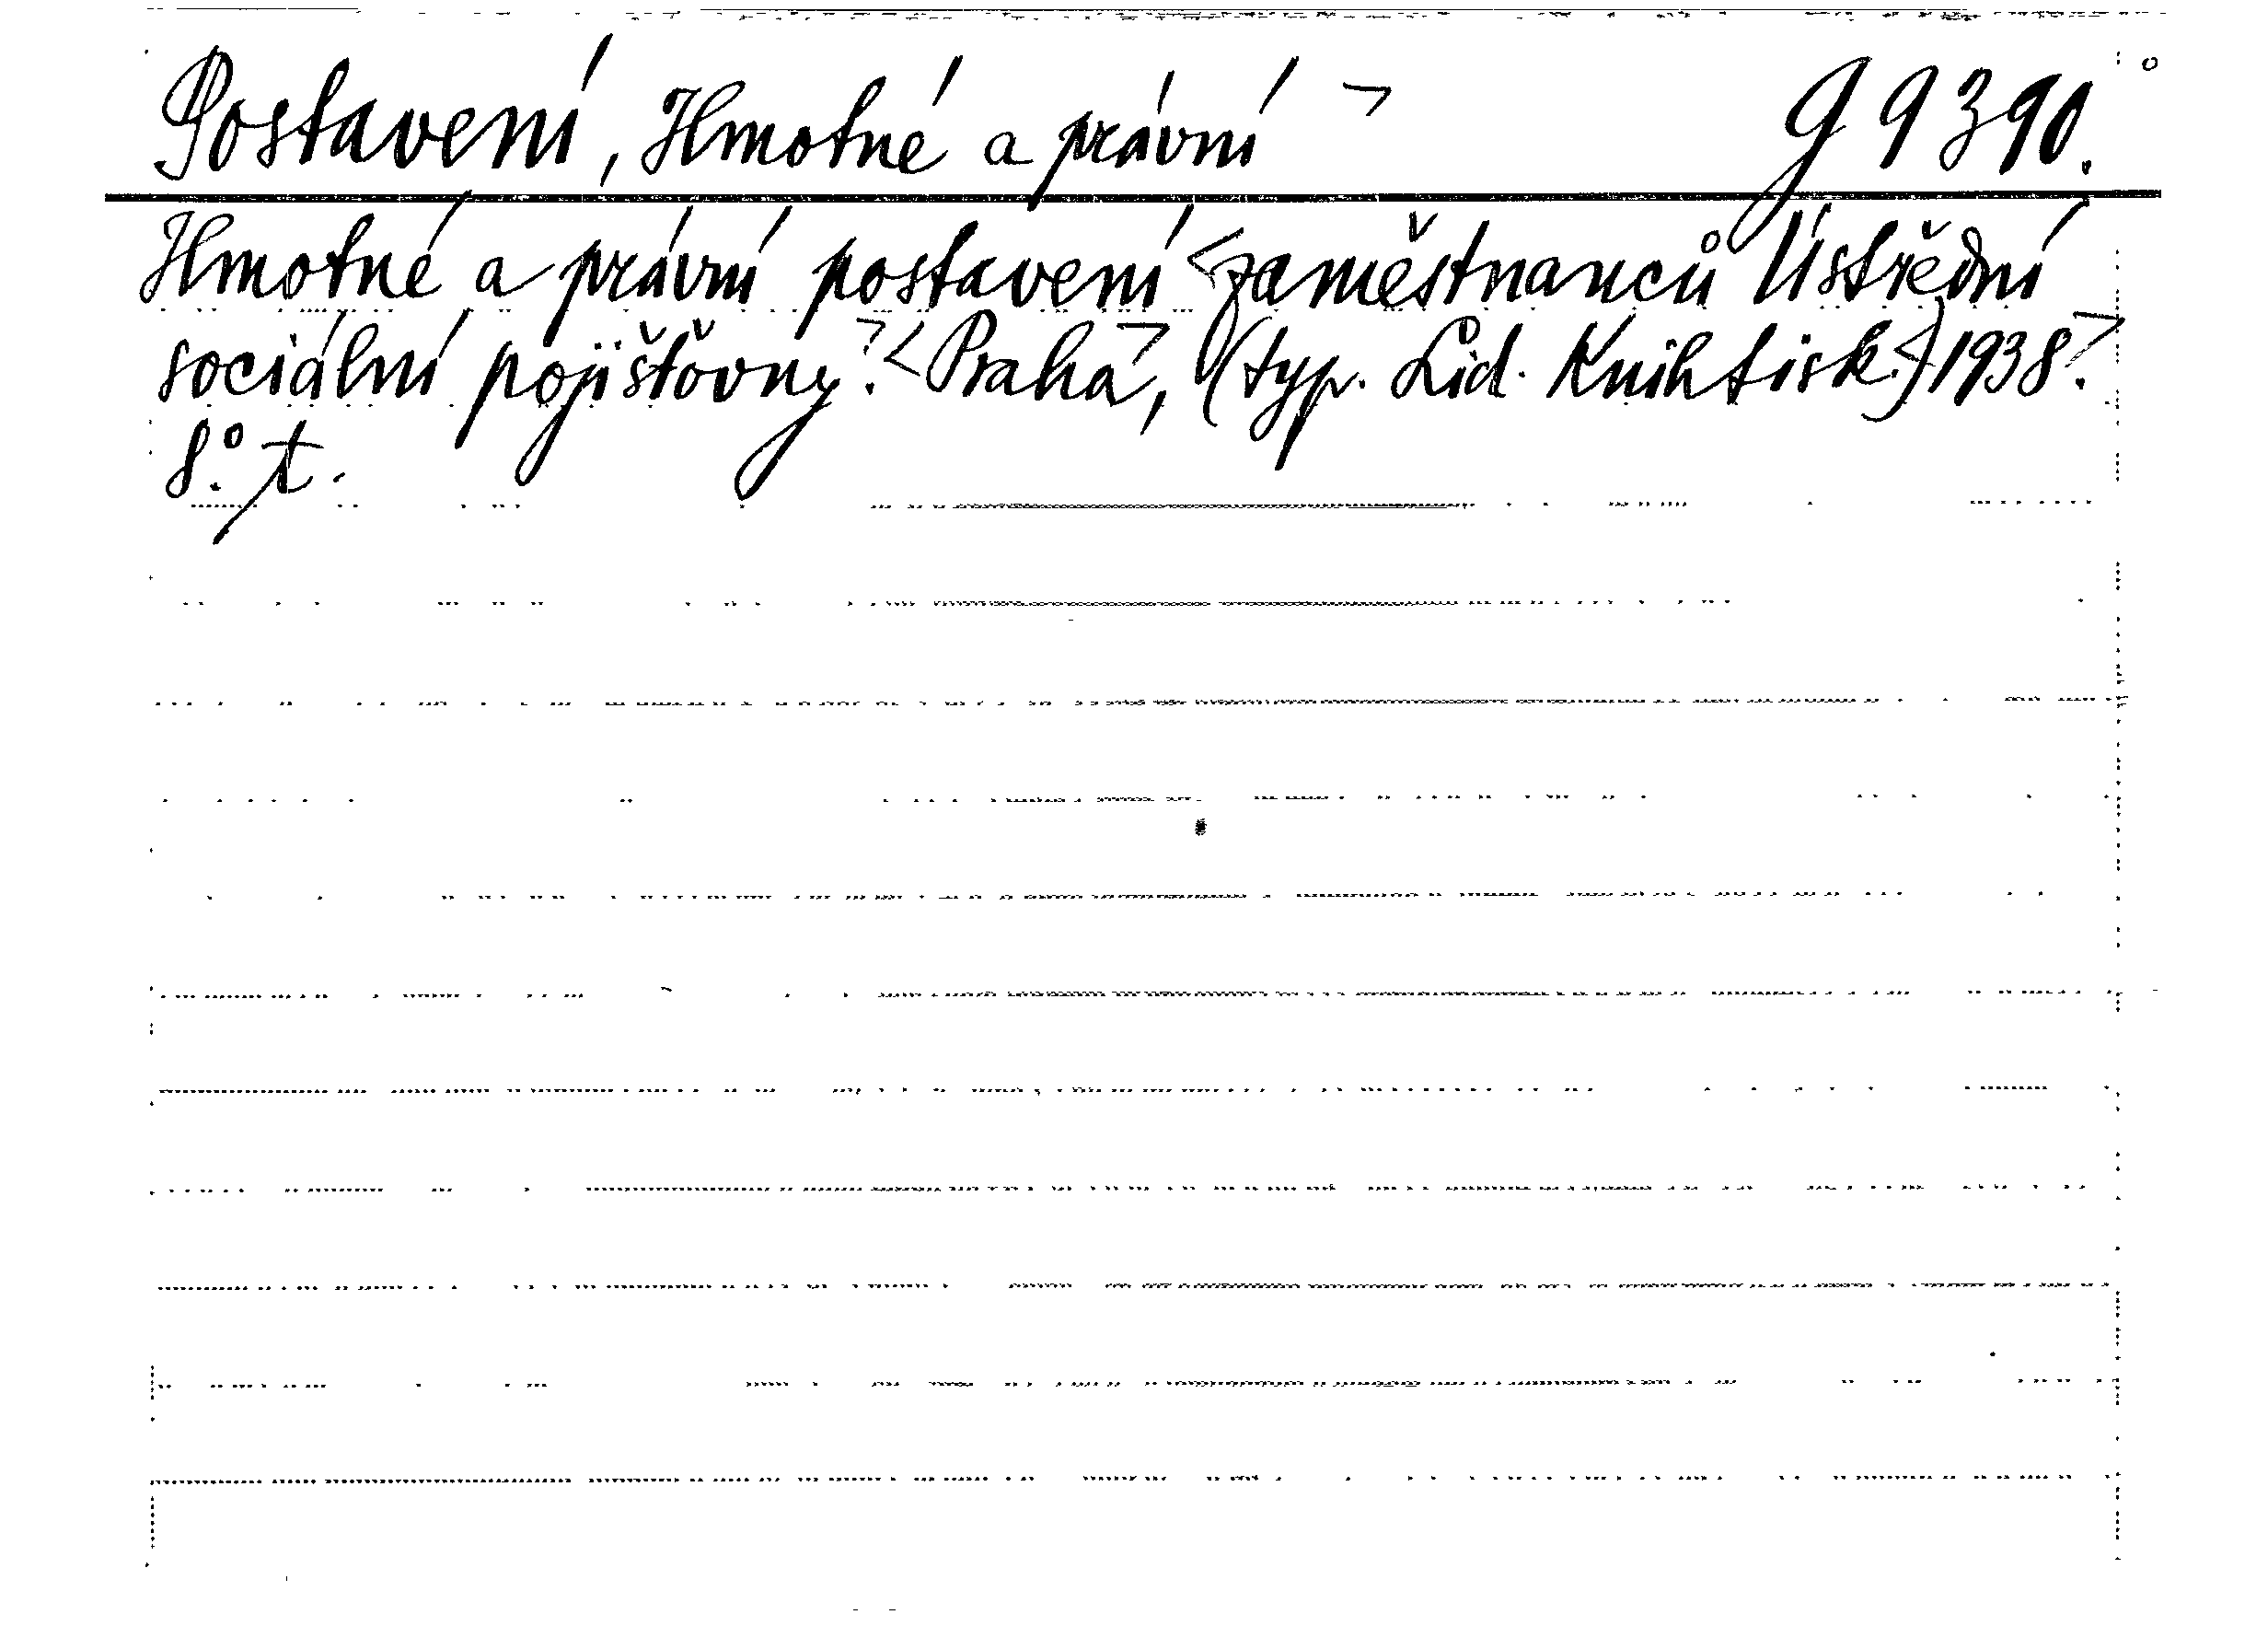 Postavení, Hmotné a právní ¬ g 9390.
Hmotné a právní postavení <zaměstnanců Ústřední
sociální pojišťovny.¬ <Praha¬, (typ. Lid. Knihtisk.) 1938.¬
8.° t.